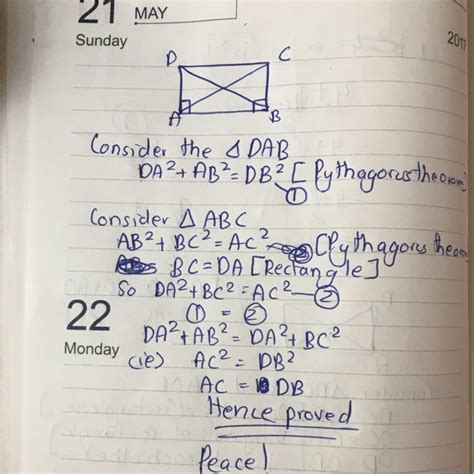 21 MAY
Sunday
201
D C
A B
Consider the Δ DAB
DA² + AB² = DB² [Pythagorus theorom]
①
Consider Δ ABC
AB² + BC² = AC² [Pythagorus theorem]
BC = DA [Rectangle]
So DA² + BC² = AC² — ②
① = ②
22
Monday
DA² + AB² = DA² + BC²
(ie) AC² = DB²
AC = DB
Hence proved
Peace!